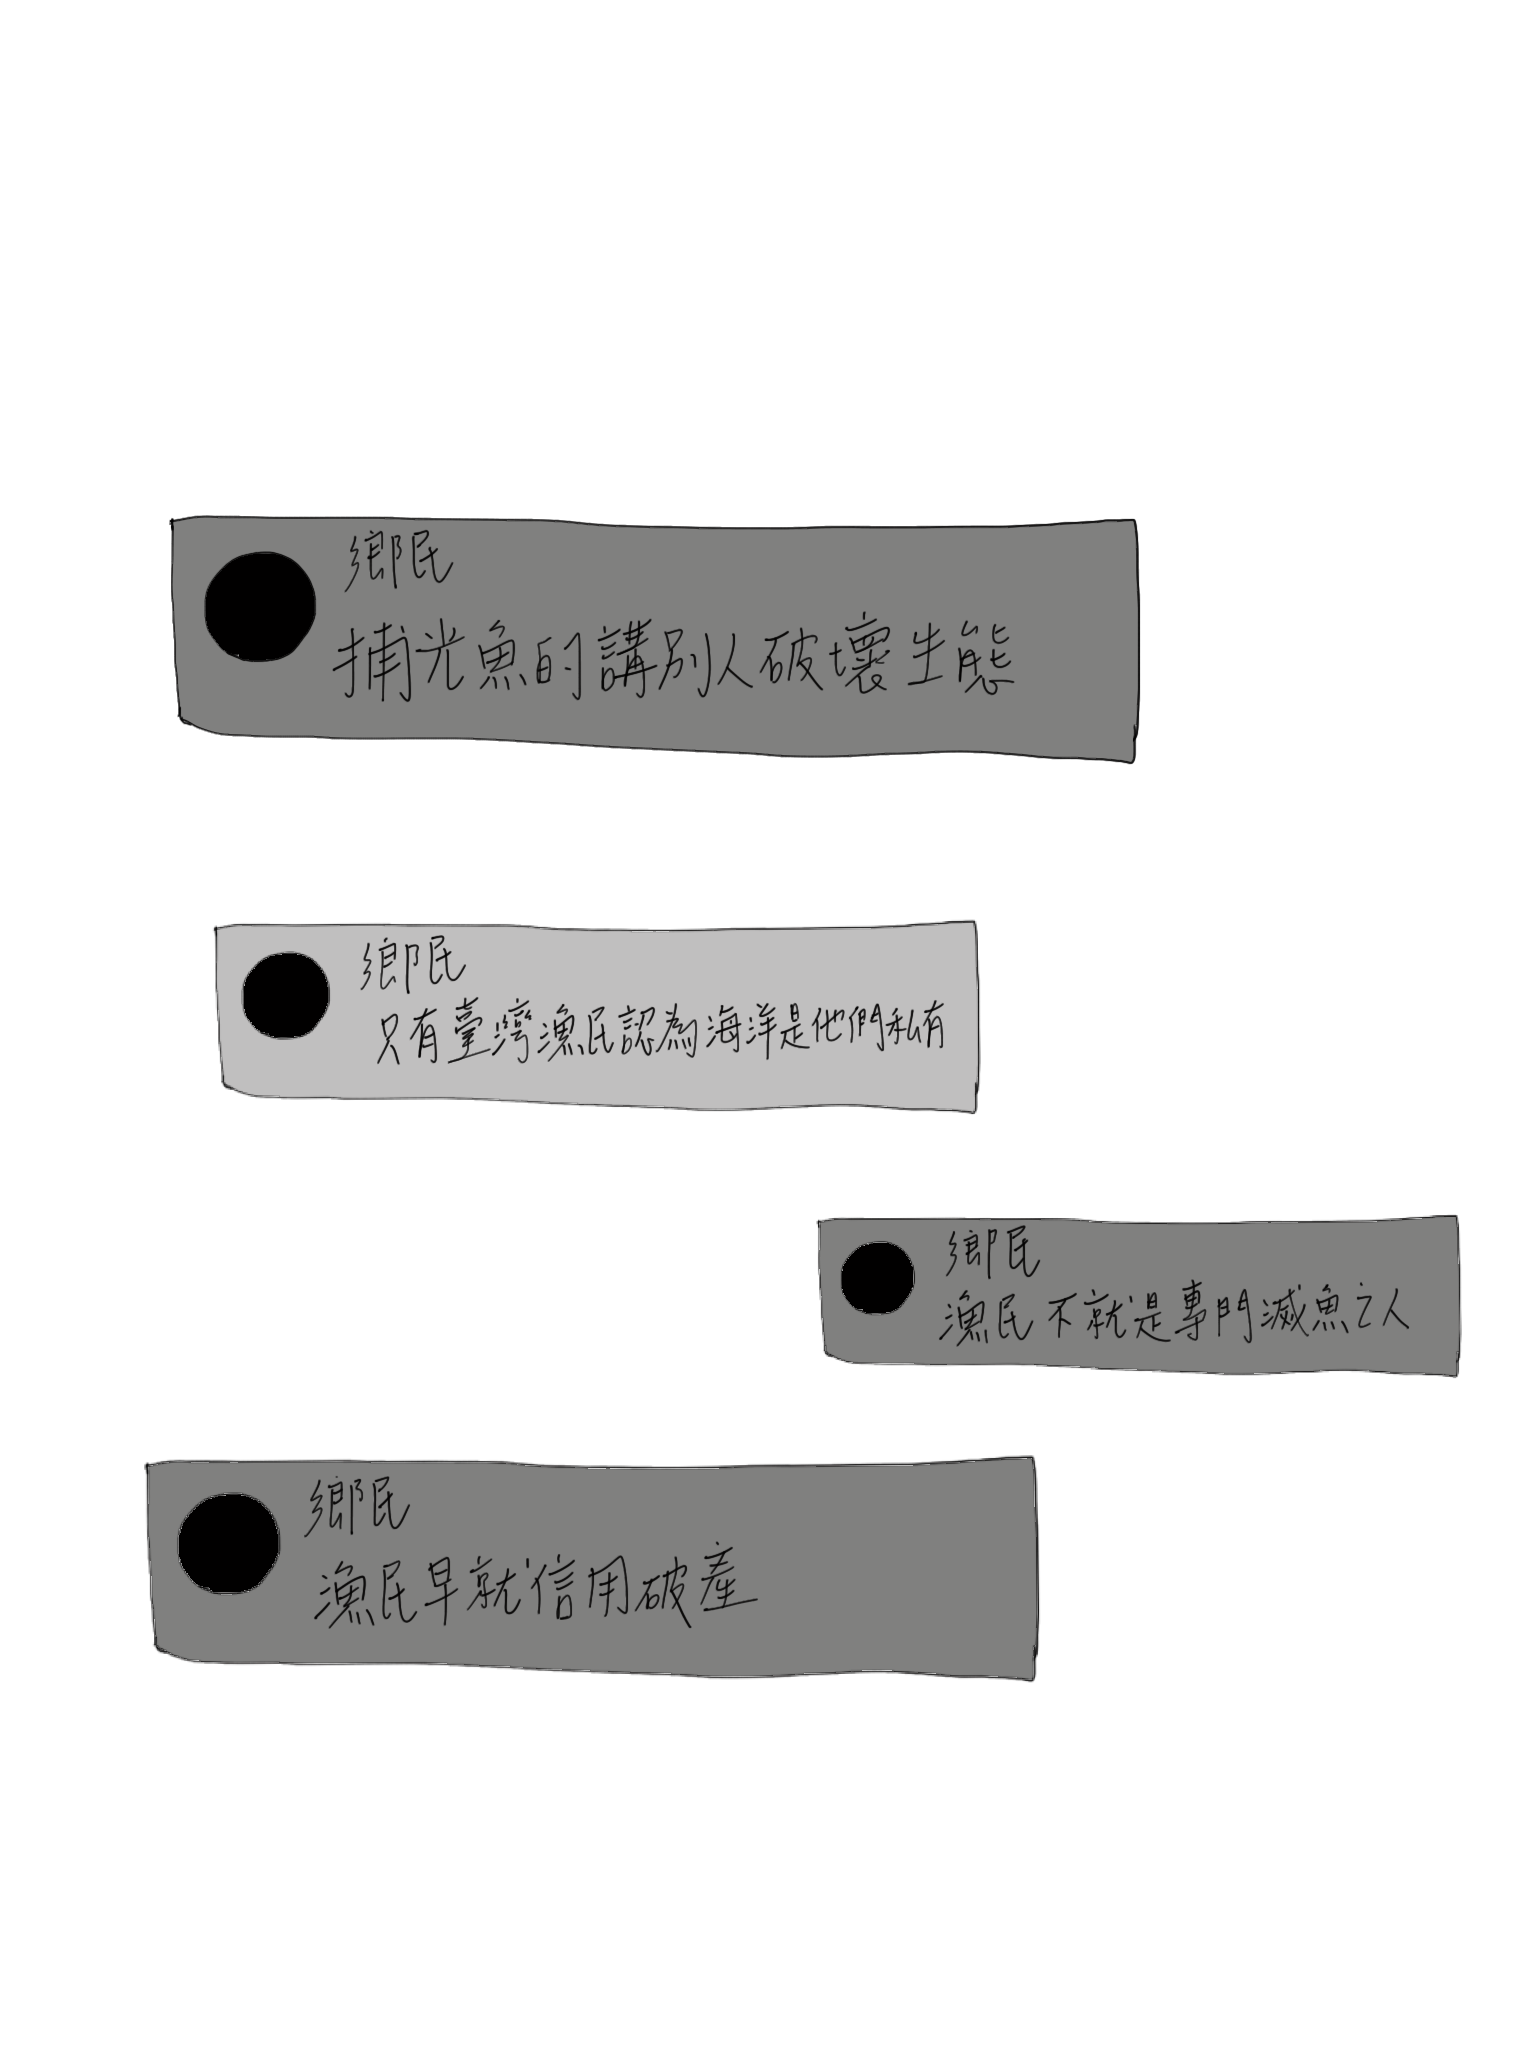 鄉民
捕光魚的講別人破壞生態
鄉民
只有臺灣漁民認為海洋是他們私有
鄉民
漁民不就是專門滅魚之人
鄉民
漁民早就信用破產